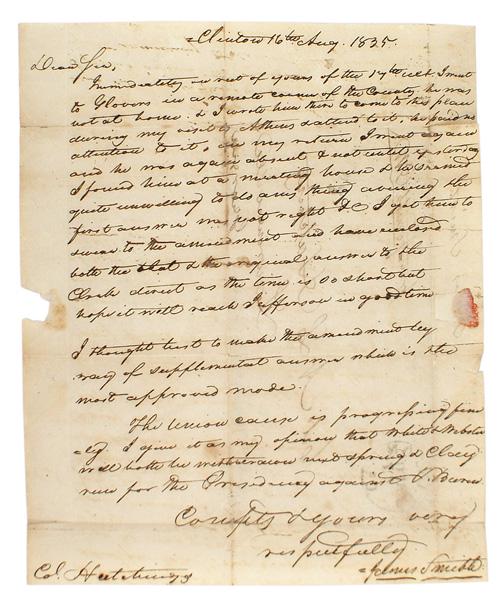 Clinton 16th Aug. 1835.
Dear Sir,
Immediately on rect of yours of the 17th ult I went
to Glovers in a remote corner of the County he was
not at home. & I wrote him then to come to this place
during my visit to Athens & attend to it, he paid no
attention to it, on my return I went again
and he was again absent & not until yesterday
I found him at a meeting house & he seemed
quite unwilling to do any thing averring the
first answer was not right &c I got him to
swear to the amendment and have enclosed
both the & the original answer to the
Clerk direct as the time is so short but
hope it will reach Jefferson in good time
I thought best to make the amendment by
way of supplemental answer which is the
most approved mode.
The Union cause is progressing fine
=ly. I give it as my opinion that White & Webster
will both be withdrawn next spring & Clay
run for the Presidency against V. Buren
Complts & yours very
respectfully
James Smith
Col. Hutchings